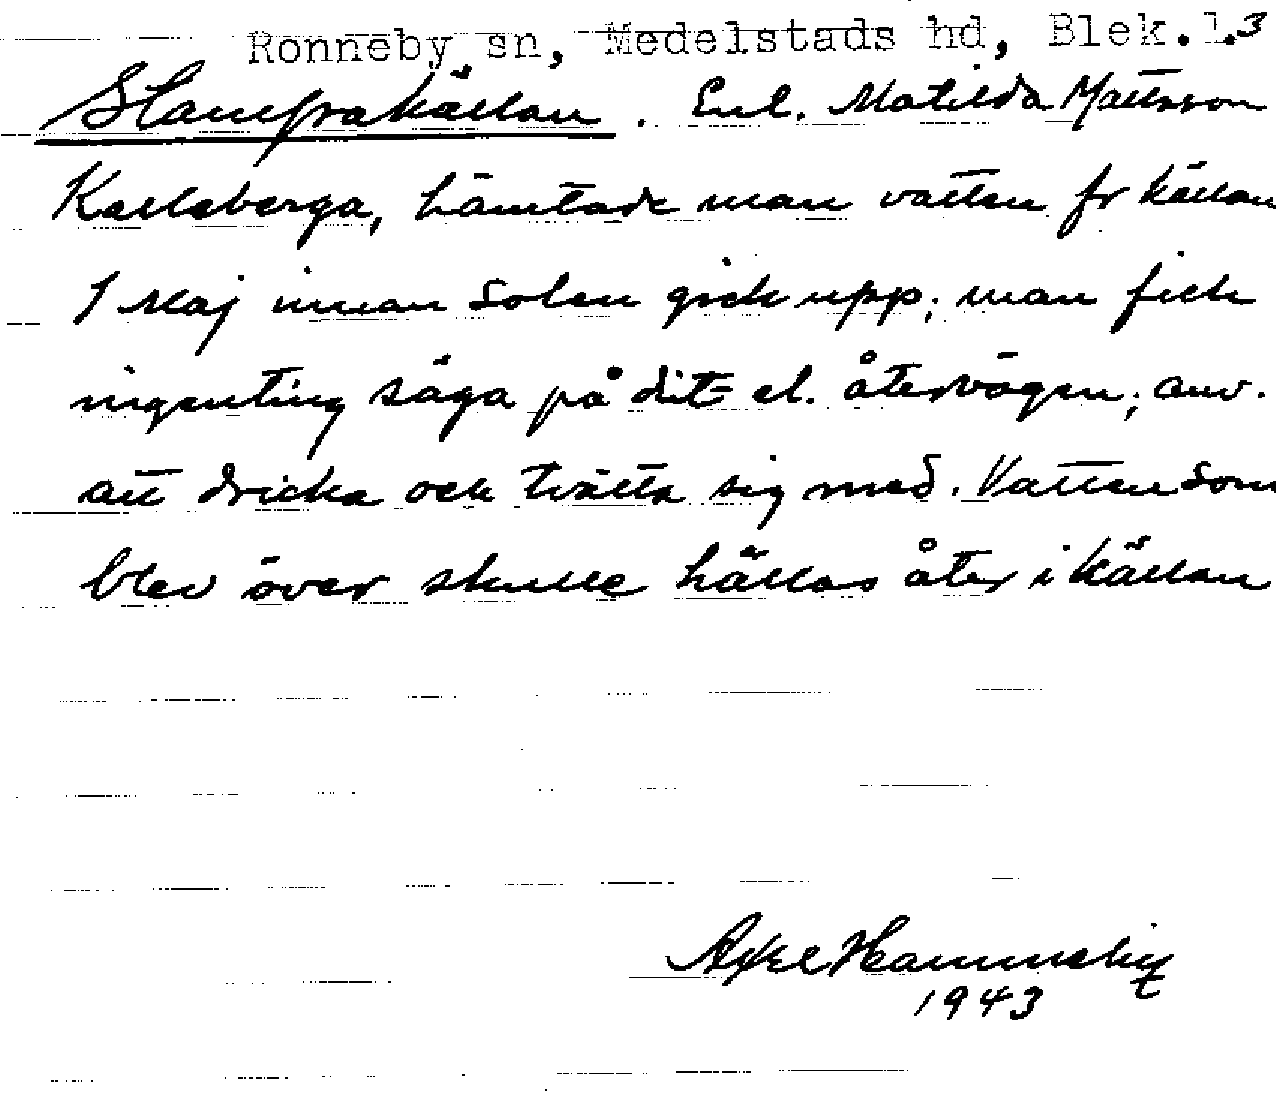 Ronneby sn, Medelstads hd, Blek. l.3
Stamprakällan. Enl. Matilda Mattsson
Kalleberga, hämtade man vatten fr källan
1 Maj innan solen gick upp; man fick
ingenting säga på dit- el. återvägen; anv.
att dricka och tvätta sig med. Vatten som
blev över skulle hällas åter i källan
Axel
1943